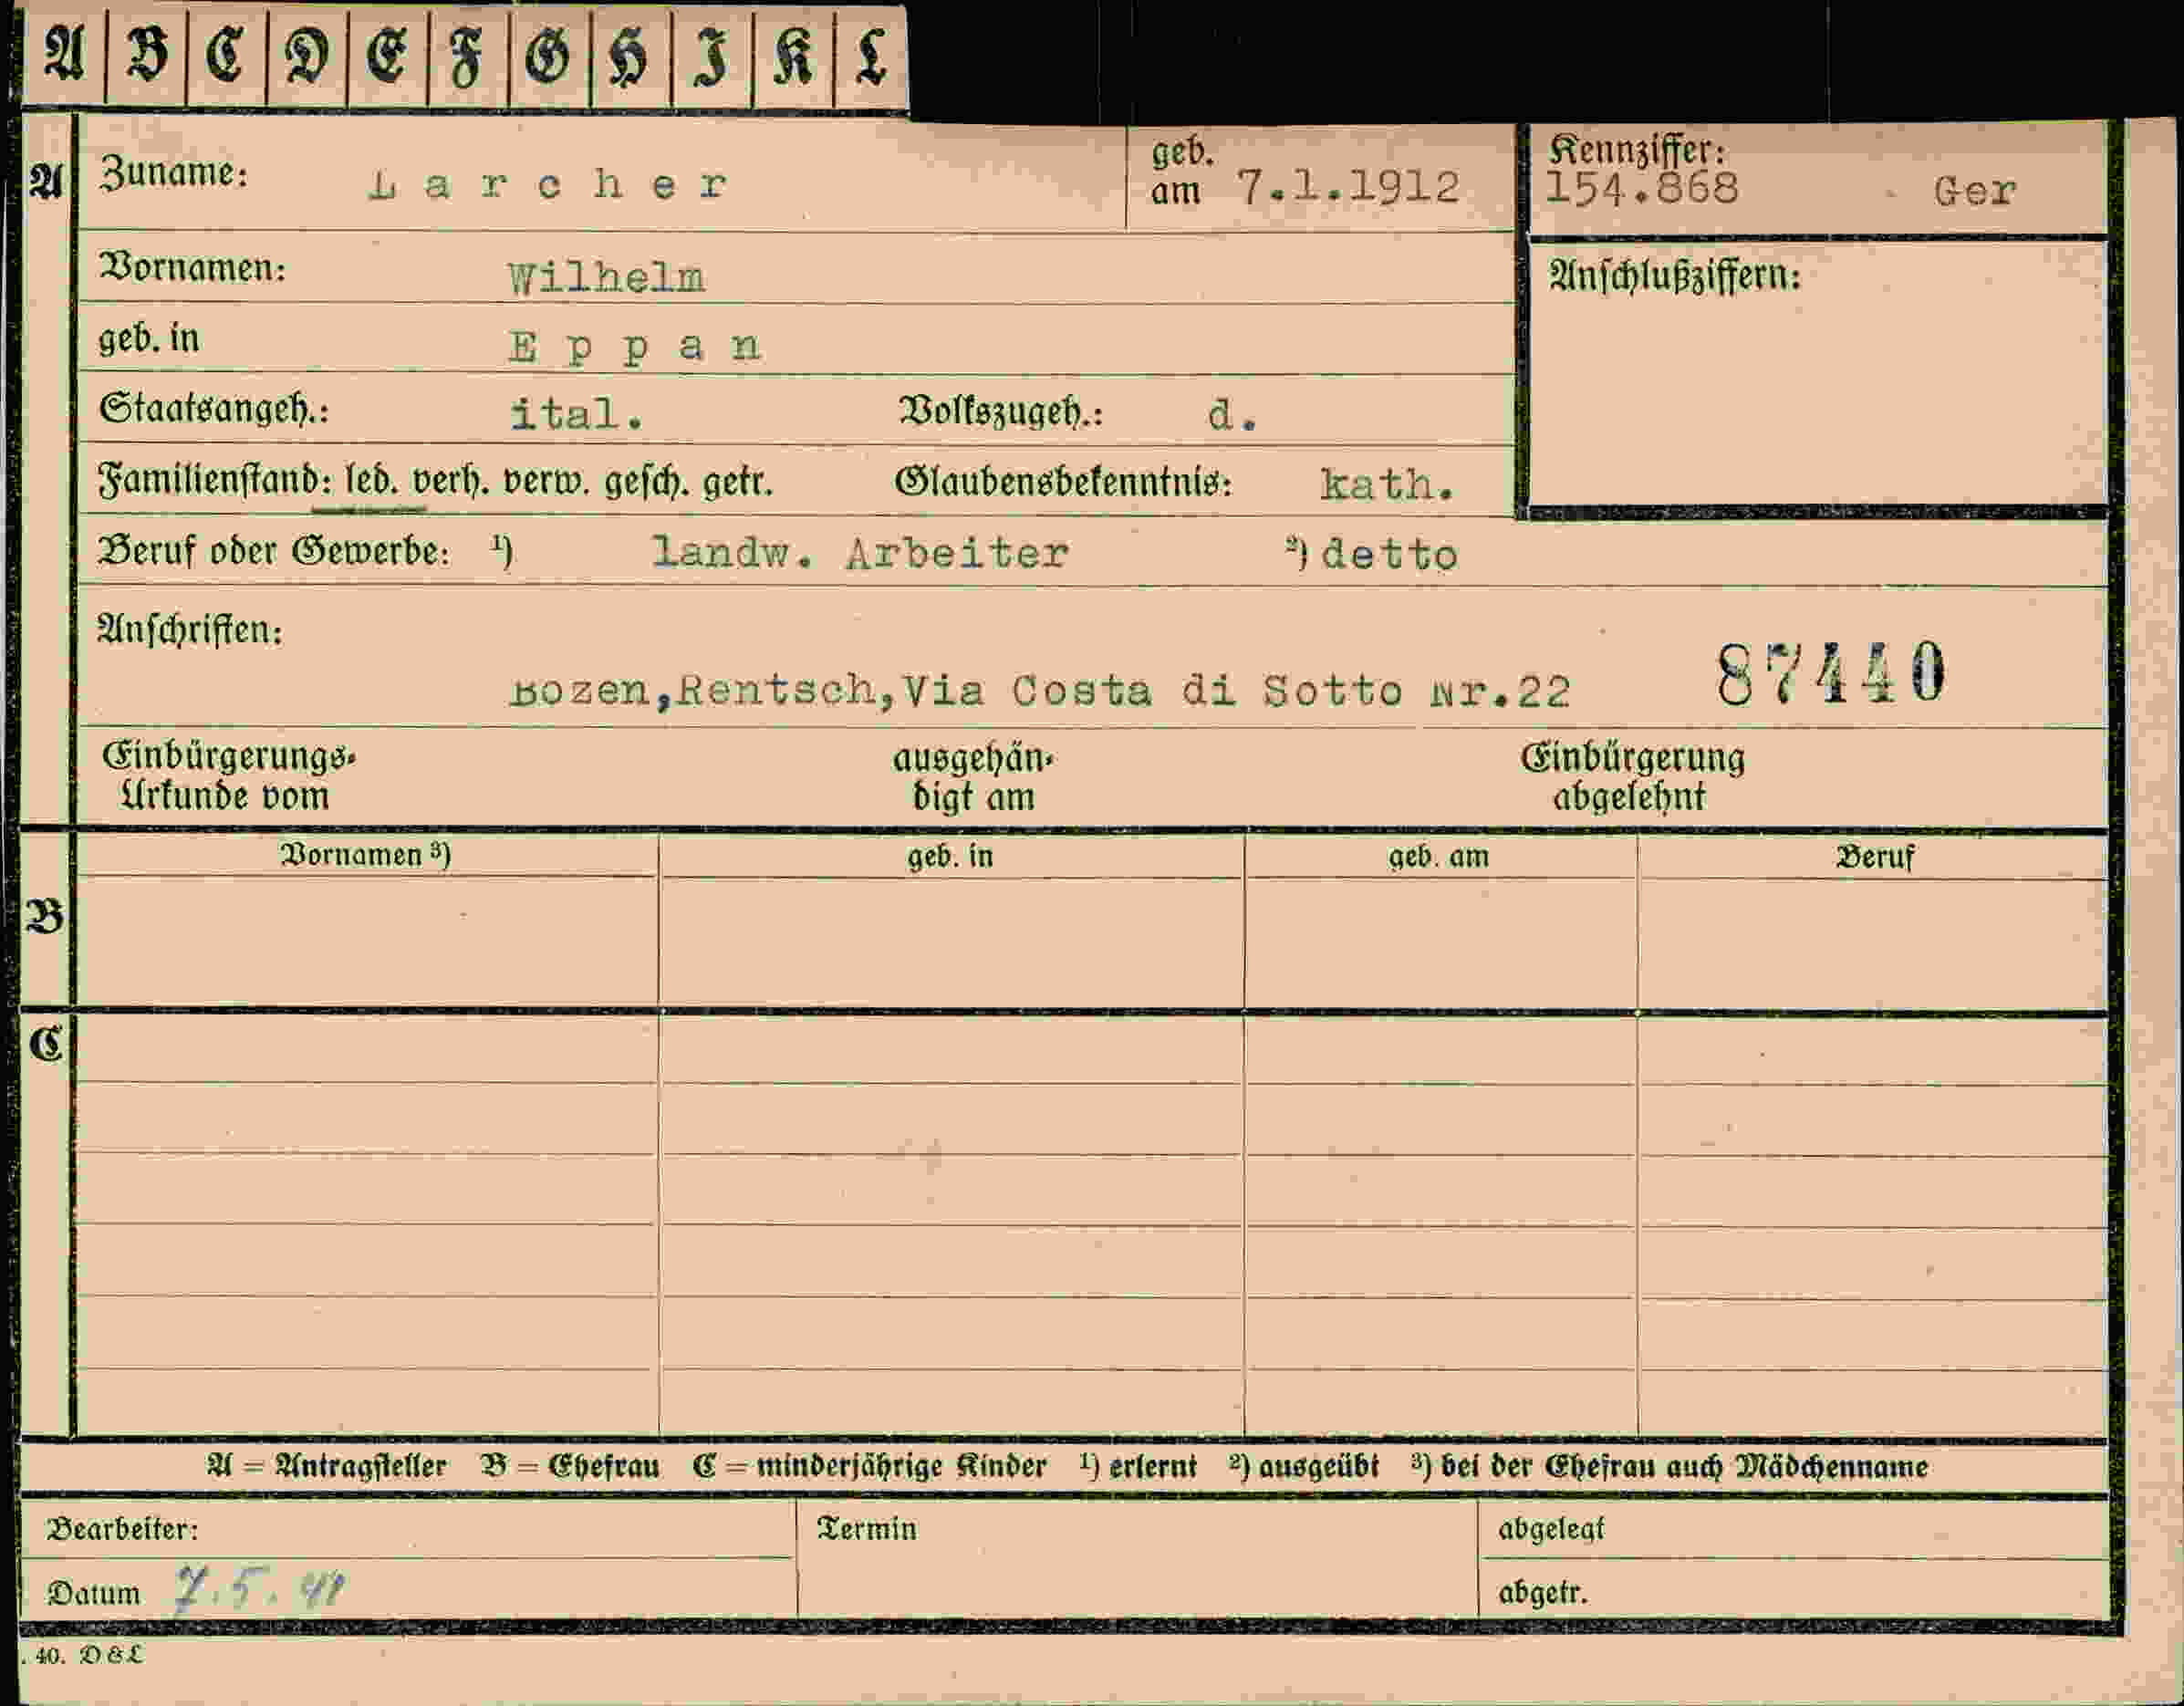 A B C D E F G H I K L
A Zuname: Larcher geb. am 7.1.1912 Kennziffer: 154.868 Ger
Vornamen: Wilhelm Anschlußziffern:
geb. in Eppan
Staatsangeh.: ital. Volkszugeh.: d.
Familienstand: led. verh. verw. gesch. getr. Glaubensbekenntnis: kath.
Beruf oder Gewerbe: ¹) landw. Arbeiter ²) detto
Anschriften:
Bozen,Rentsch,Via Costa di Sotto Nr.22 87440
Einbürgerungs- ausgehän- Einbürgerung
Urkunde vom digt am abgelehnt
Vornamen ³) geb. in geb. am Beruf
B
C
A = Antragsteller B = Ehefrau C = minderjährige Kinder ¹) erlernt ²) ausgeübt ³) bei der Ehefrau auch Mädchenname
Bearbeiter: Termin abgelegt
Datum 7.5.41 abgetr.
. 40. D & L